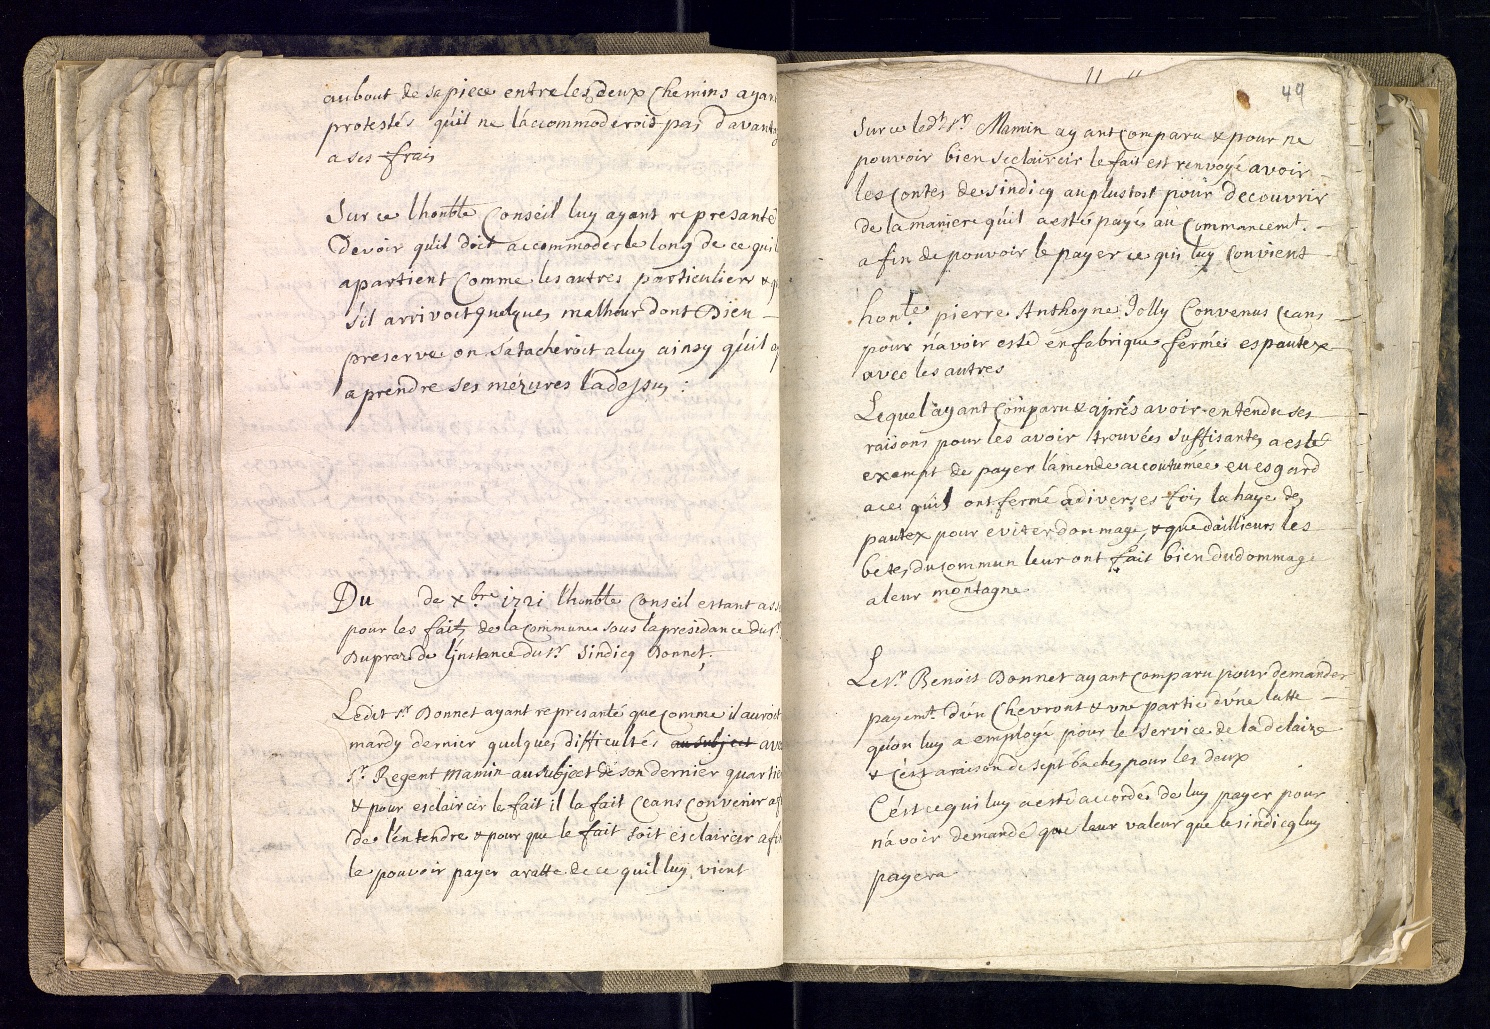 au bout de sa piece entre les deux Chemins ayan
protestés qu'il ne l'accommoderoit pas d'avant
a ses frais
Sur ce lhonble Conseil luy ayant represanté
Devoir qu'il doit accommoder le long de ce qui
apartient Comme les autres particuliers &
s'il arrivoit quelques malheur dont Dieu
preserve on s'atacheroit a luy ainsy qu'il
a prendre ses mezures la dessus :
Du de xbre 1721 lhonble Conseil estant ass
pour les faits de la Commune sous la presidance du sr
Dupraz de l'instance du sr Sindicq Bonnet.
Ledit sr Bonnet ayant represanté que comme il auroit
mardy dernier quelques difficultés au subject av
sr Regent Mamin au subject de son dernier quartie
& pour esclaircir le fait il la fait Ceans Convenir af
de l'entendre & pour que le fait soit esclaircir afi
le pouvoir payer aratte de ce quil luy vient
49
Sur ce ledt sr Mamin ayant Comparu & pour ne
pouvoir bien seclaircir le fait est renvoyé avoir
les Contes de Sindicq au plustost pour decouvrir
de la maniere qu'il a esté payé au Commancemt.
afin de pouvoir le payer ce qui luy Convient
honte pierre Anthoyne Jolly Convenus Ceans
pour n'avoir esté en fabrique fermés es pautex
avec les autres
Lequel ayant Comparu & aprés avoir entendu ses
raisons pour les avoir trouvées suffisantes a esté
exempt de payer l'amende accoutumée eu esgard
a ce quil ont fermé a diverses fois la haye des
pautex pour eviter dommage, & que d'aillieurs les
betes du Commun leur ont fait bien du dommage
a leur montagne
Le sr Benoit Bonnet ayant Comparu pour demander
payemt d'un Chevront & une partie d'une latte
qu'on luy a employé pour le service de la delaize
& C'est a raison de sept baches pour les deux
C'est ce qui luy a esté accordés de luy payer pour
n'avoir demandé que leur valeur que le sindicq luy
payera